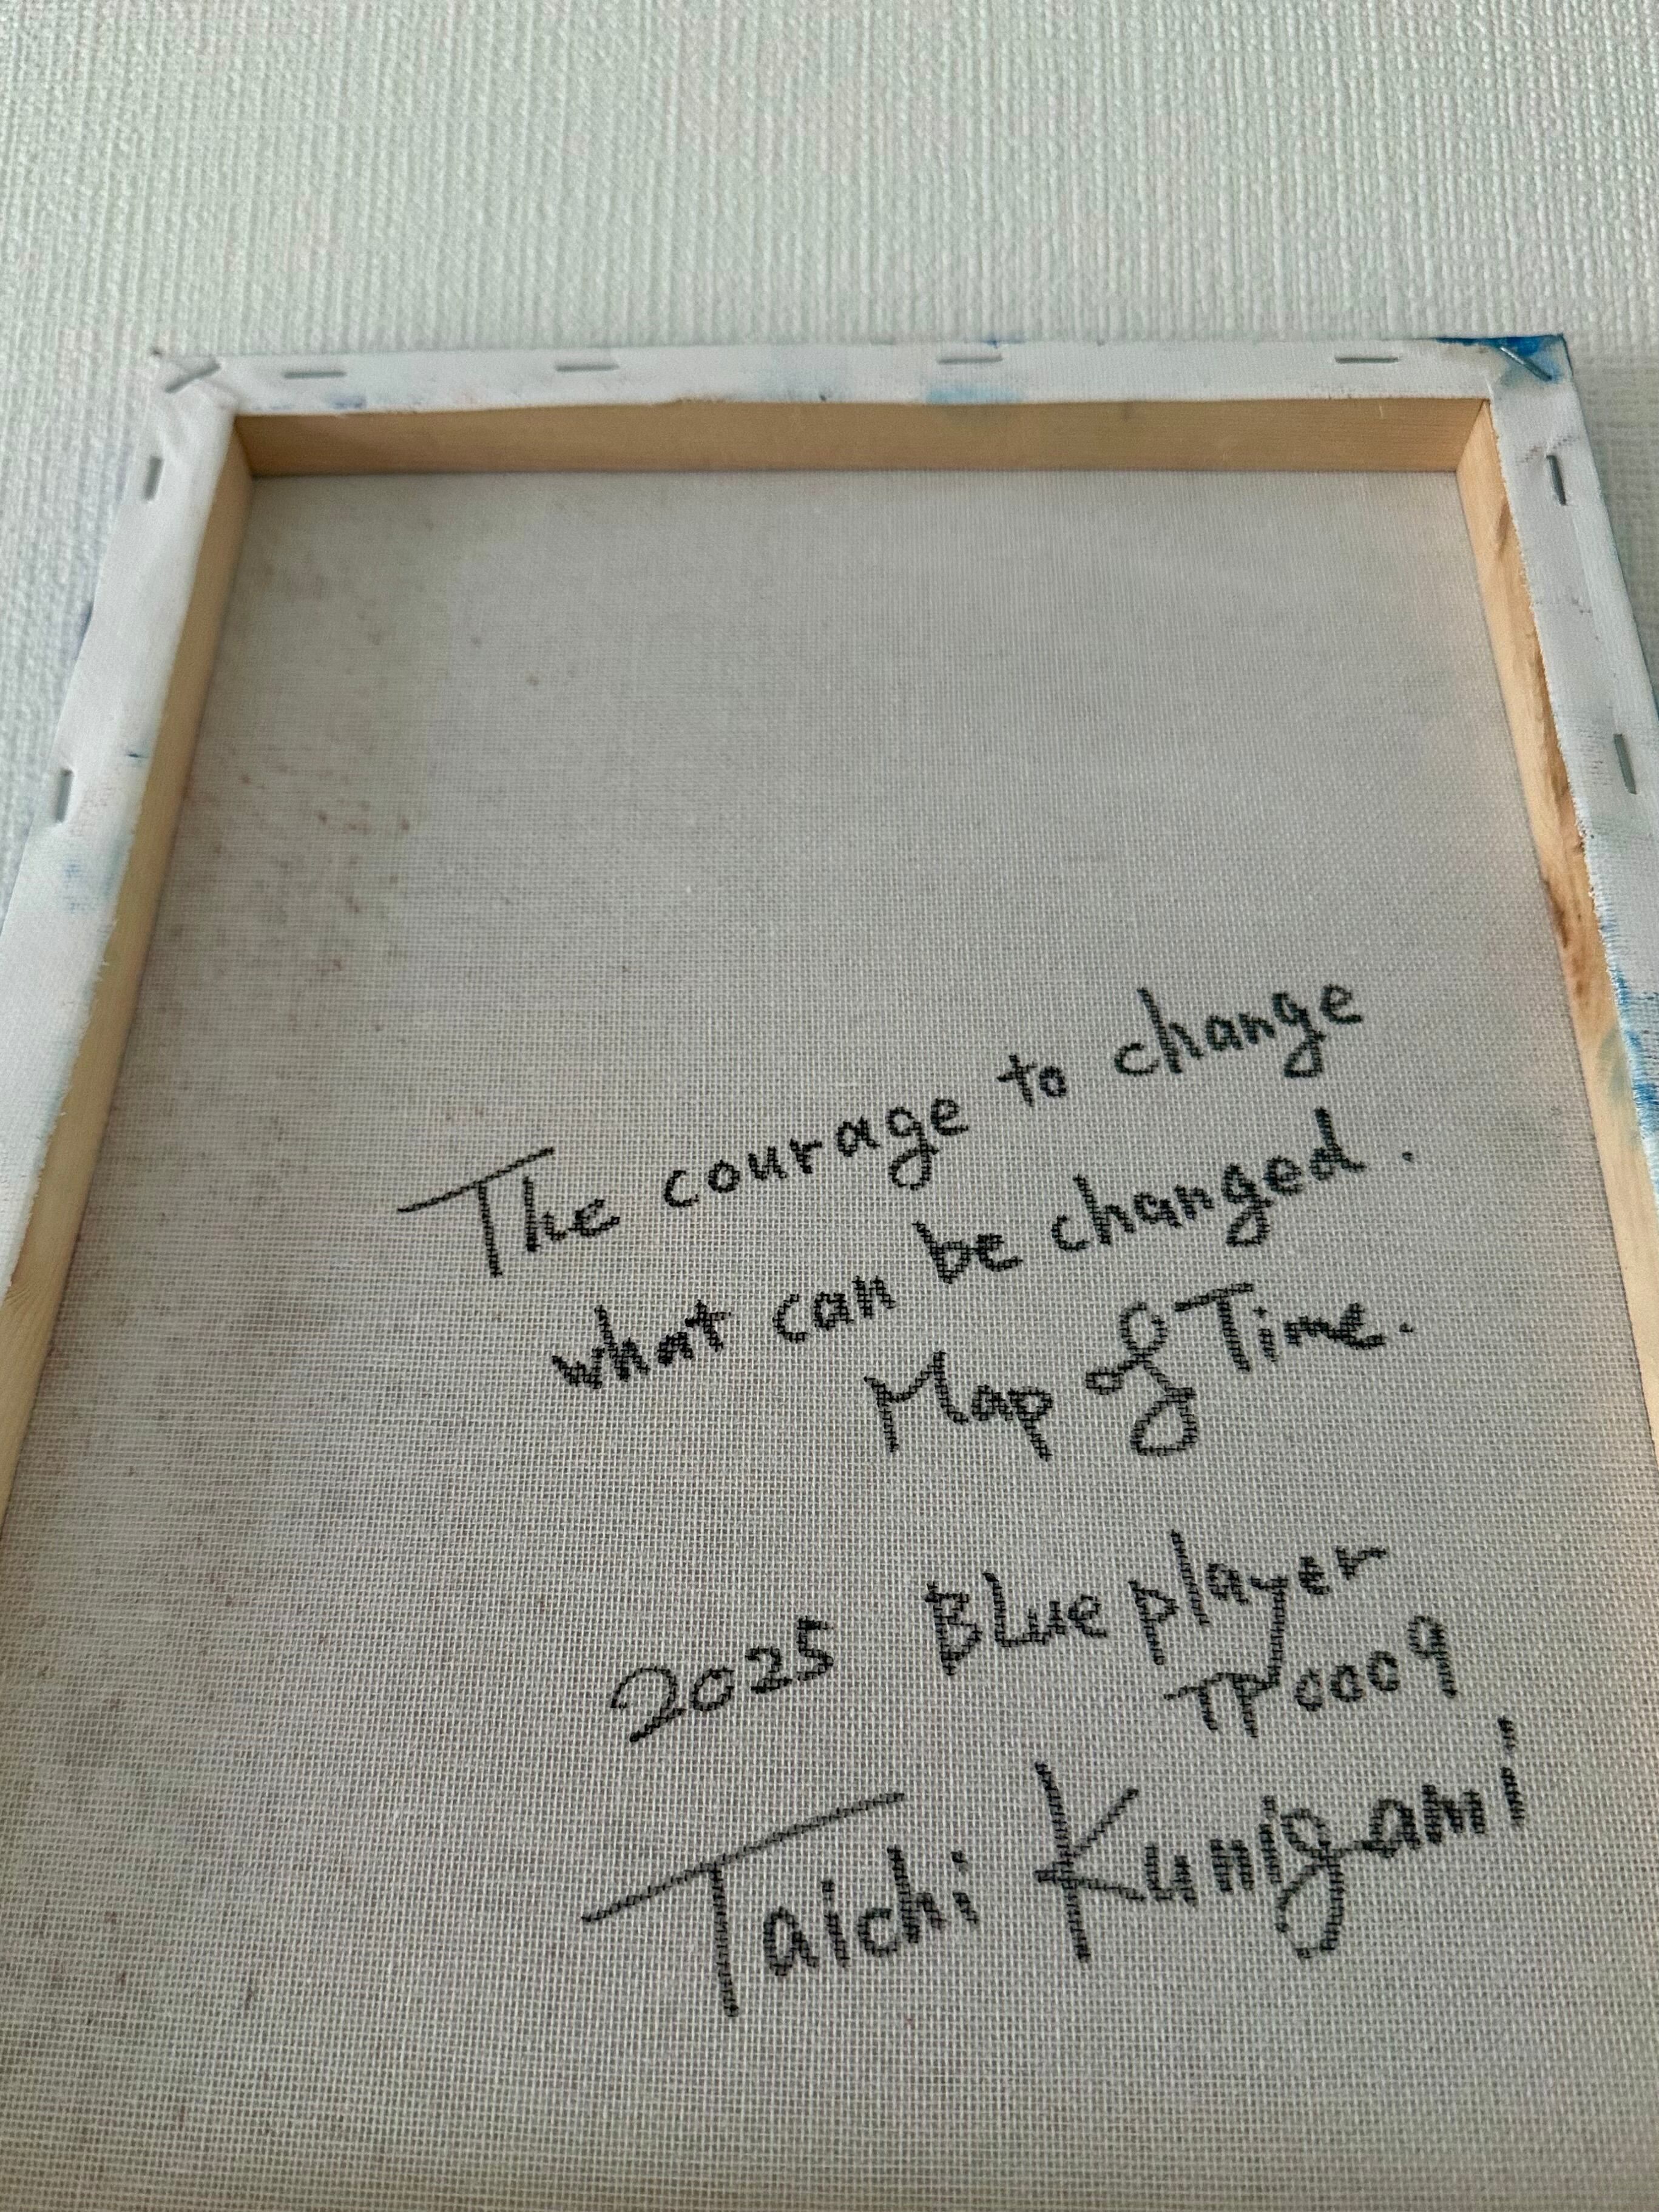 The courage to change
what can be changed.
Map of Time.
2025 Blue player
TP0009
Taichi Kunigami